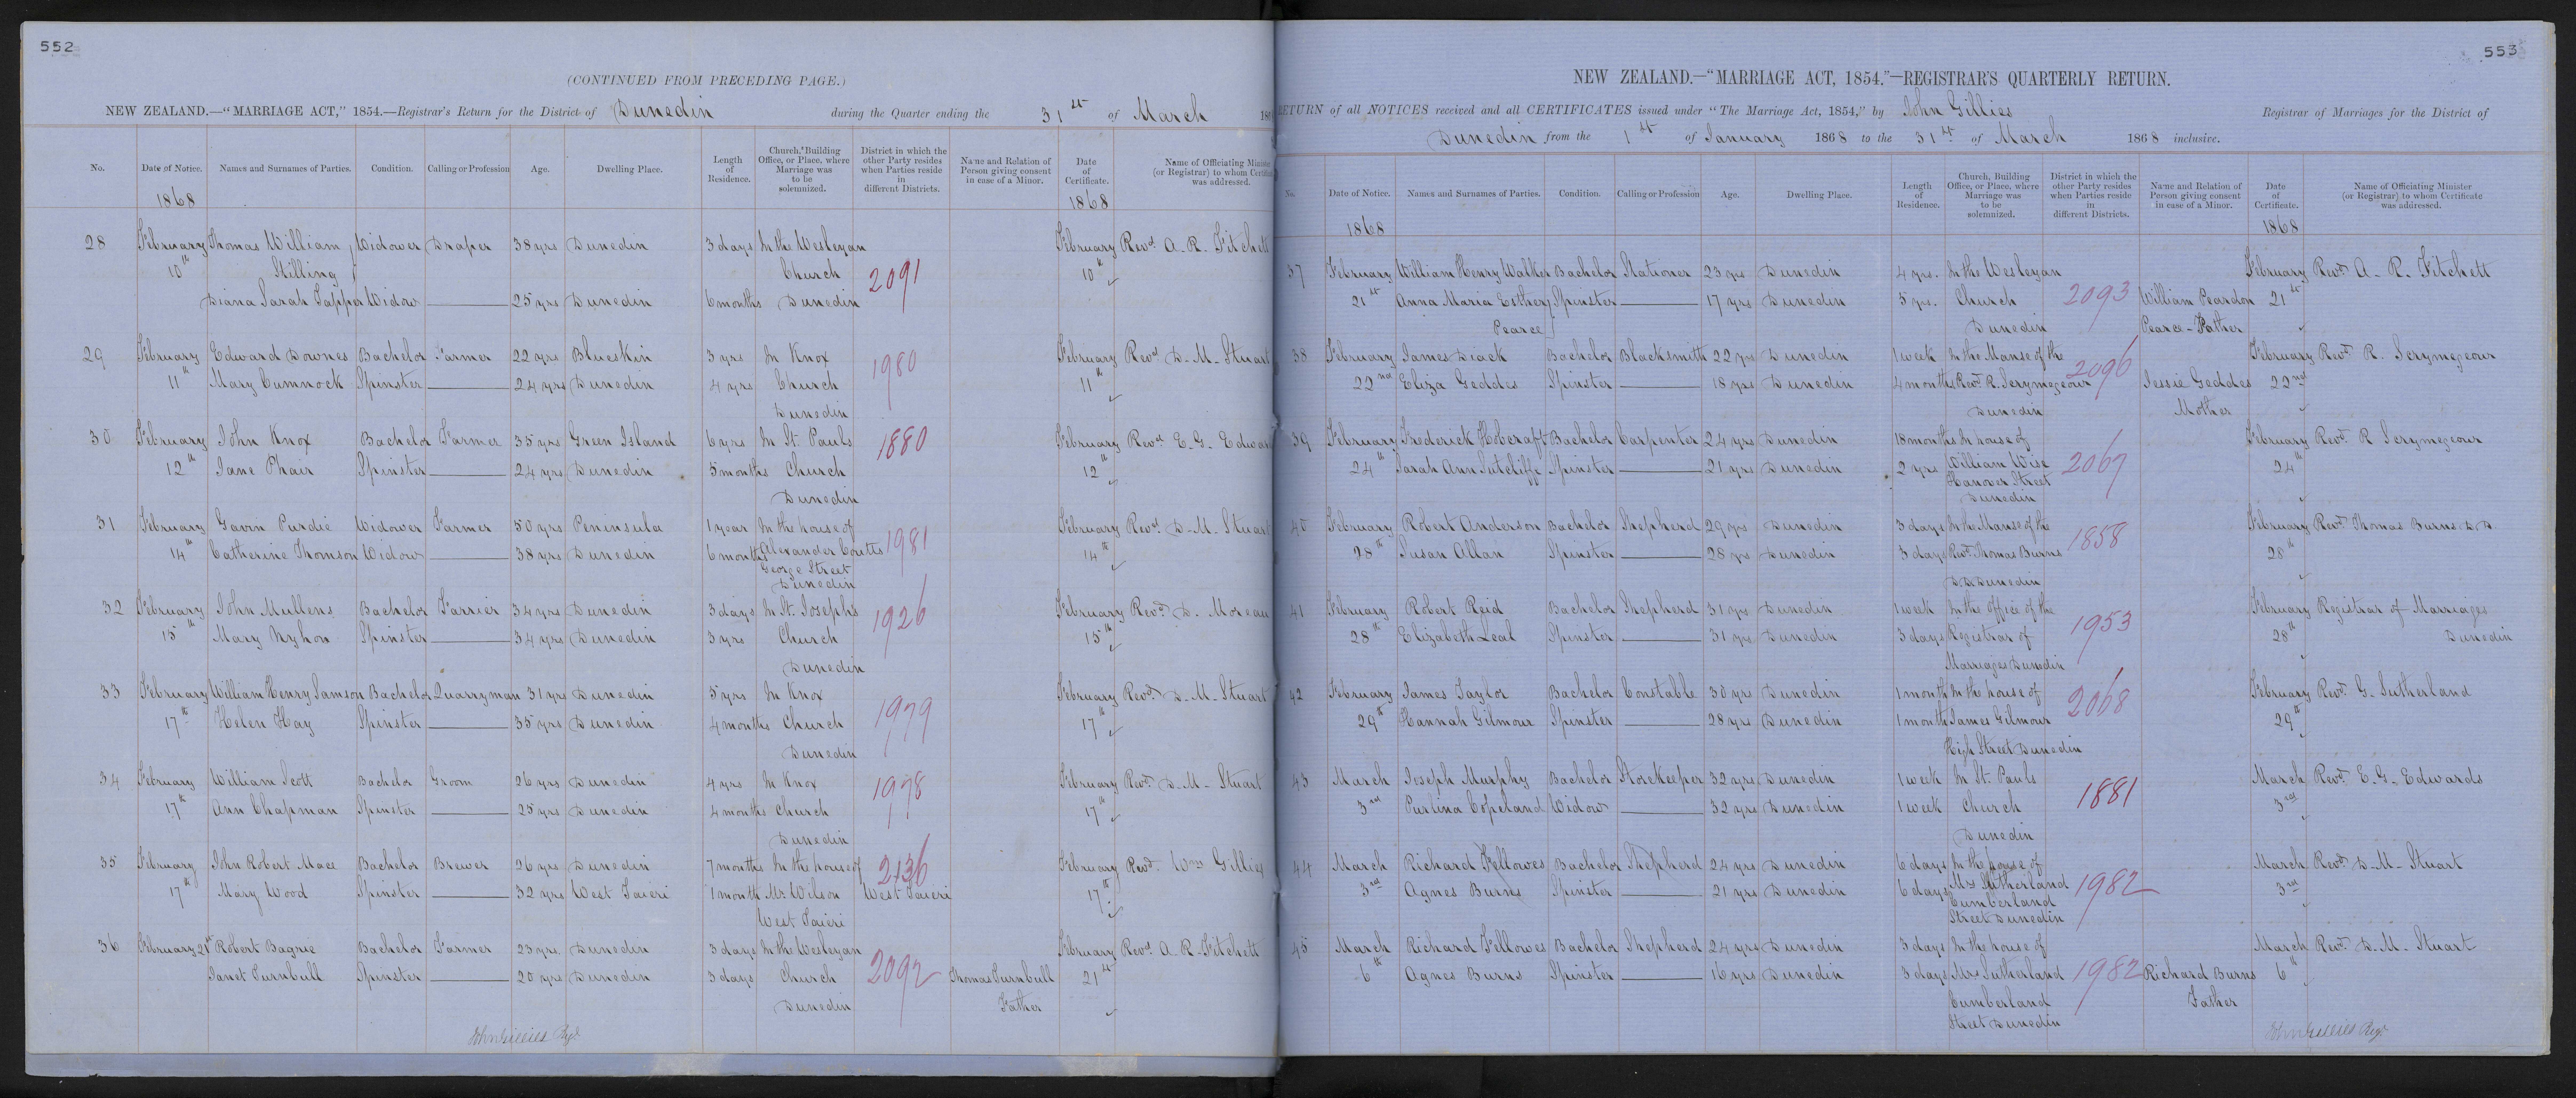 552
(CONTINUED FROM PRECEDING PAGE.)
NEW ZEALAND.—"MARRIAGE ACT," 1854.—Registrar's Return for the District of Dunedin during the Quarter ending the 31st of March 186
No. Date of Notice. Names and Surnames of Parties. Condition. Calling or Profession Age. Dwelling Place. Length of Residence. Church, Building Office, or Place, where Marriage was to be solemnized. District in which the other Party resides when Parties reside in different Districts. Name and Relation of Person giving consent in case of a Minor. Date of Certificate. Name of Officiating Minister (or Registrar) to whom Certificate was addressed.
1868 1868
28 February Thomas William Widower Draper 38 yrs Dunedin 3 days In the Wesleyan February Revd A. R. Fitchett
10th Stilling Church 2091 10th
Diana Sarah Tapper Widow 25 yrs Dunedin 6 months Dunedin
29 February Edward Downes Bachelor Farmer 22 yrs Blueskin 3 yrs In Knox 1980 February Revd D. M. Stuart
11th Mary Cumnock Spinster 24 yrs Dunedin 4 yrs Church 11th
Dunedin
30 February John Knox Bachelor Farmer 35 yrs Green Island 6 yrs In St. Pauls 1880 February Revd E. G. Edward
12th Jane Phair Spinster 24 yrs Dunedin 5 months Church 12th
Dunedin
31 February Gavin Purdie Widower Farmer 50 yrs Peninsula 1 year In the house of 1981 February Revd D. M. Stuart
14th Catherine Thomson Widow 38 yrs Dunedin 6 months Alexander Coutts 14th
George Street
Dunedin
32 February John Mullens Bachelor Farrier 34 yrs Dunedin 3 days In St. Joseph's 1926 February Revd D. Moreau
15th Mary Nyhon Spinster 34 yrs Dunedin 3 yrs Church 15th
Dunedin
33 February William Henry Samson Bachelor Quarryman 31 yrs Dunedin 5 yrs In Knox February Revd D. M. Stuart
17th Helen Hay Spinster 35 yrs Dunedin 4 months Church 1979 17th
Dunedin
34 February William Scott Bachelor Groom 26 yrs Dunedin 4 yrs In Knox 1978 February Revd D. M. Stuart
17th Ann Chapman Spinster 25 yrs Dunedin 4 months Church 17th
Dunedin
35 February John Robert Mace Bachelor Brewer 26 yrs Dunedin 7 months In the house of 2136 February Revd Wm Gillies
17th Mary Wood Spinster 32 yrs West Taieri 1 month Mr. Wilson West Taieri 17th
West Taieri
36 February 21st Robert Bagrie Bachelor Farmer 23 yrs Dunedin 3 days In the Wesleyan February Revd A. R. Fitchett
Janet Turnbull Spinster 20 yrs Dunedin 3 days Church 2092 Thomas Turnbull 21st
Dunedin Father
John Gillies Regr
553
NEW ZEALAND.—"MARRIAGE ACT, 1854."—REGISTRAR'S QUARTERLY RETURN.
RETURN of all NOTICES received and all CERTIFICATES issued under "The Marriage Act, 1854," by John Gillies Registrar of Marriages for the District of
Dunedin from the 1st of January 1868 to the 31st of March 1868 inclusive.
No. Date of Notice. Names and Surnames of Parties. Condition. Calling or Profession Age. Dwelling Place. Length of Residence. Church, Building Office, or Place, where Marriage was to be solemnized. District in which the other Party resides when Parties reside in different Districts. Name and Relation of Person giving consent in case of a Minor. Date of Certificate. Name of Officiating Minister (or Registrar) to whom Certificate was addressed.
1868 1868
37 February William Henry Walker Bachelor Stationer 23 yrs Dunedin 4 yrs. In the Wesleyan February Revd A. R. Fitchett
21st Anna Maria Esther Spinster 17 yrs Dunedin 5 yrs. Church 2093 William Peardon 21st
Pearce Dunedin Pearce - Father
38 February James Diack Bachelor Blacksmith 22 yrs Dunedin 1 week In the Manse of the 2096 February Revd R. Scrymegeour
22nd Eliza Geddes Spinster 18 yrs Dunedin 4 months Revd R. Scrymegeour Jessie Geddes 22nd
Dunedin Mother
39 February Frederick Hobcraft Bachelor Carpenter 24 yrs Dunedin 18 months In house of February Revd R Scrymegeour
24th Sarah Ann Sutcliffe Spinster 21 yrs Dunedin 2 yrs William Wise 2067 24th
Hanover Street
Dunedin
40 February Robert Anderson Bachelor Shepherd 29 yrs Dunedin 3 days In the Manse of the 1858 February Revd Thomas Burns D.D.
28th Susan Allan Spinster 28 yrs Dunedin 3 days Revd Thomas Burns 28th
D.D. Dunedin
41 February Robert Reid Bachelor Shepherd 31 yrs Dunedin 1 week In the office of the 1953 February Registrar of Marriages
28th Elizabeth Leal Spinster 31 yrs Dunedin 3 days Registrar of 28th Dunedin
Marriages Dunedin
42 February James Taylor Bachelor Constable 30 yrs Dunedin 1 month In the house of 2068 February Revd G. Sutherland
29th Hannah Gilmour Spinster 28 yrs Dunedin 1 month James Gilmour 29th
High Street Dunedin
43 March Joseph Murphy Bachelor Storekeeper 32 yrs Dunedin 1 week In St. Pauls 1881 March Revd E. G. Edwards
3rd Purlina Copeland Widow 32 yrs Dunedin 1 week Church 3rd
Dunedin
44 March Richard Fellowes Bachelor Shepherd 24 yrs Dunedin 6 days In the house of March Revd D. M. Stuart
3rd Agnes Burns Spinster 21 yrs Dunedin 6 days Mrs Sutherland 1982 3rd
Cumberland
Street Dunedin
45 March Richard Fellowes Bachelor Shepherd 24 yrs Dunedin 3 days In the house of March Revd D. M. Stuart
6th Agnes Burns Spinster 16 yrs Dunedin 3 days Mrs Sutherland 1982 Richard Burns 6th
Cumberland Father
Street Dunedin
John Gillies Regr